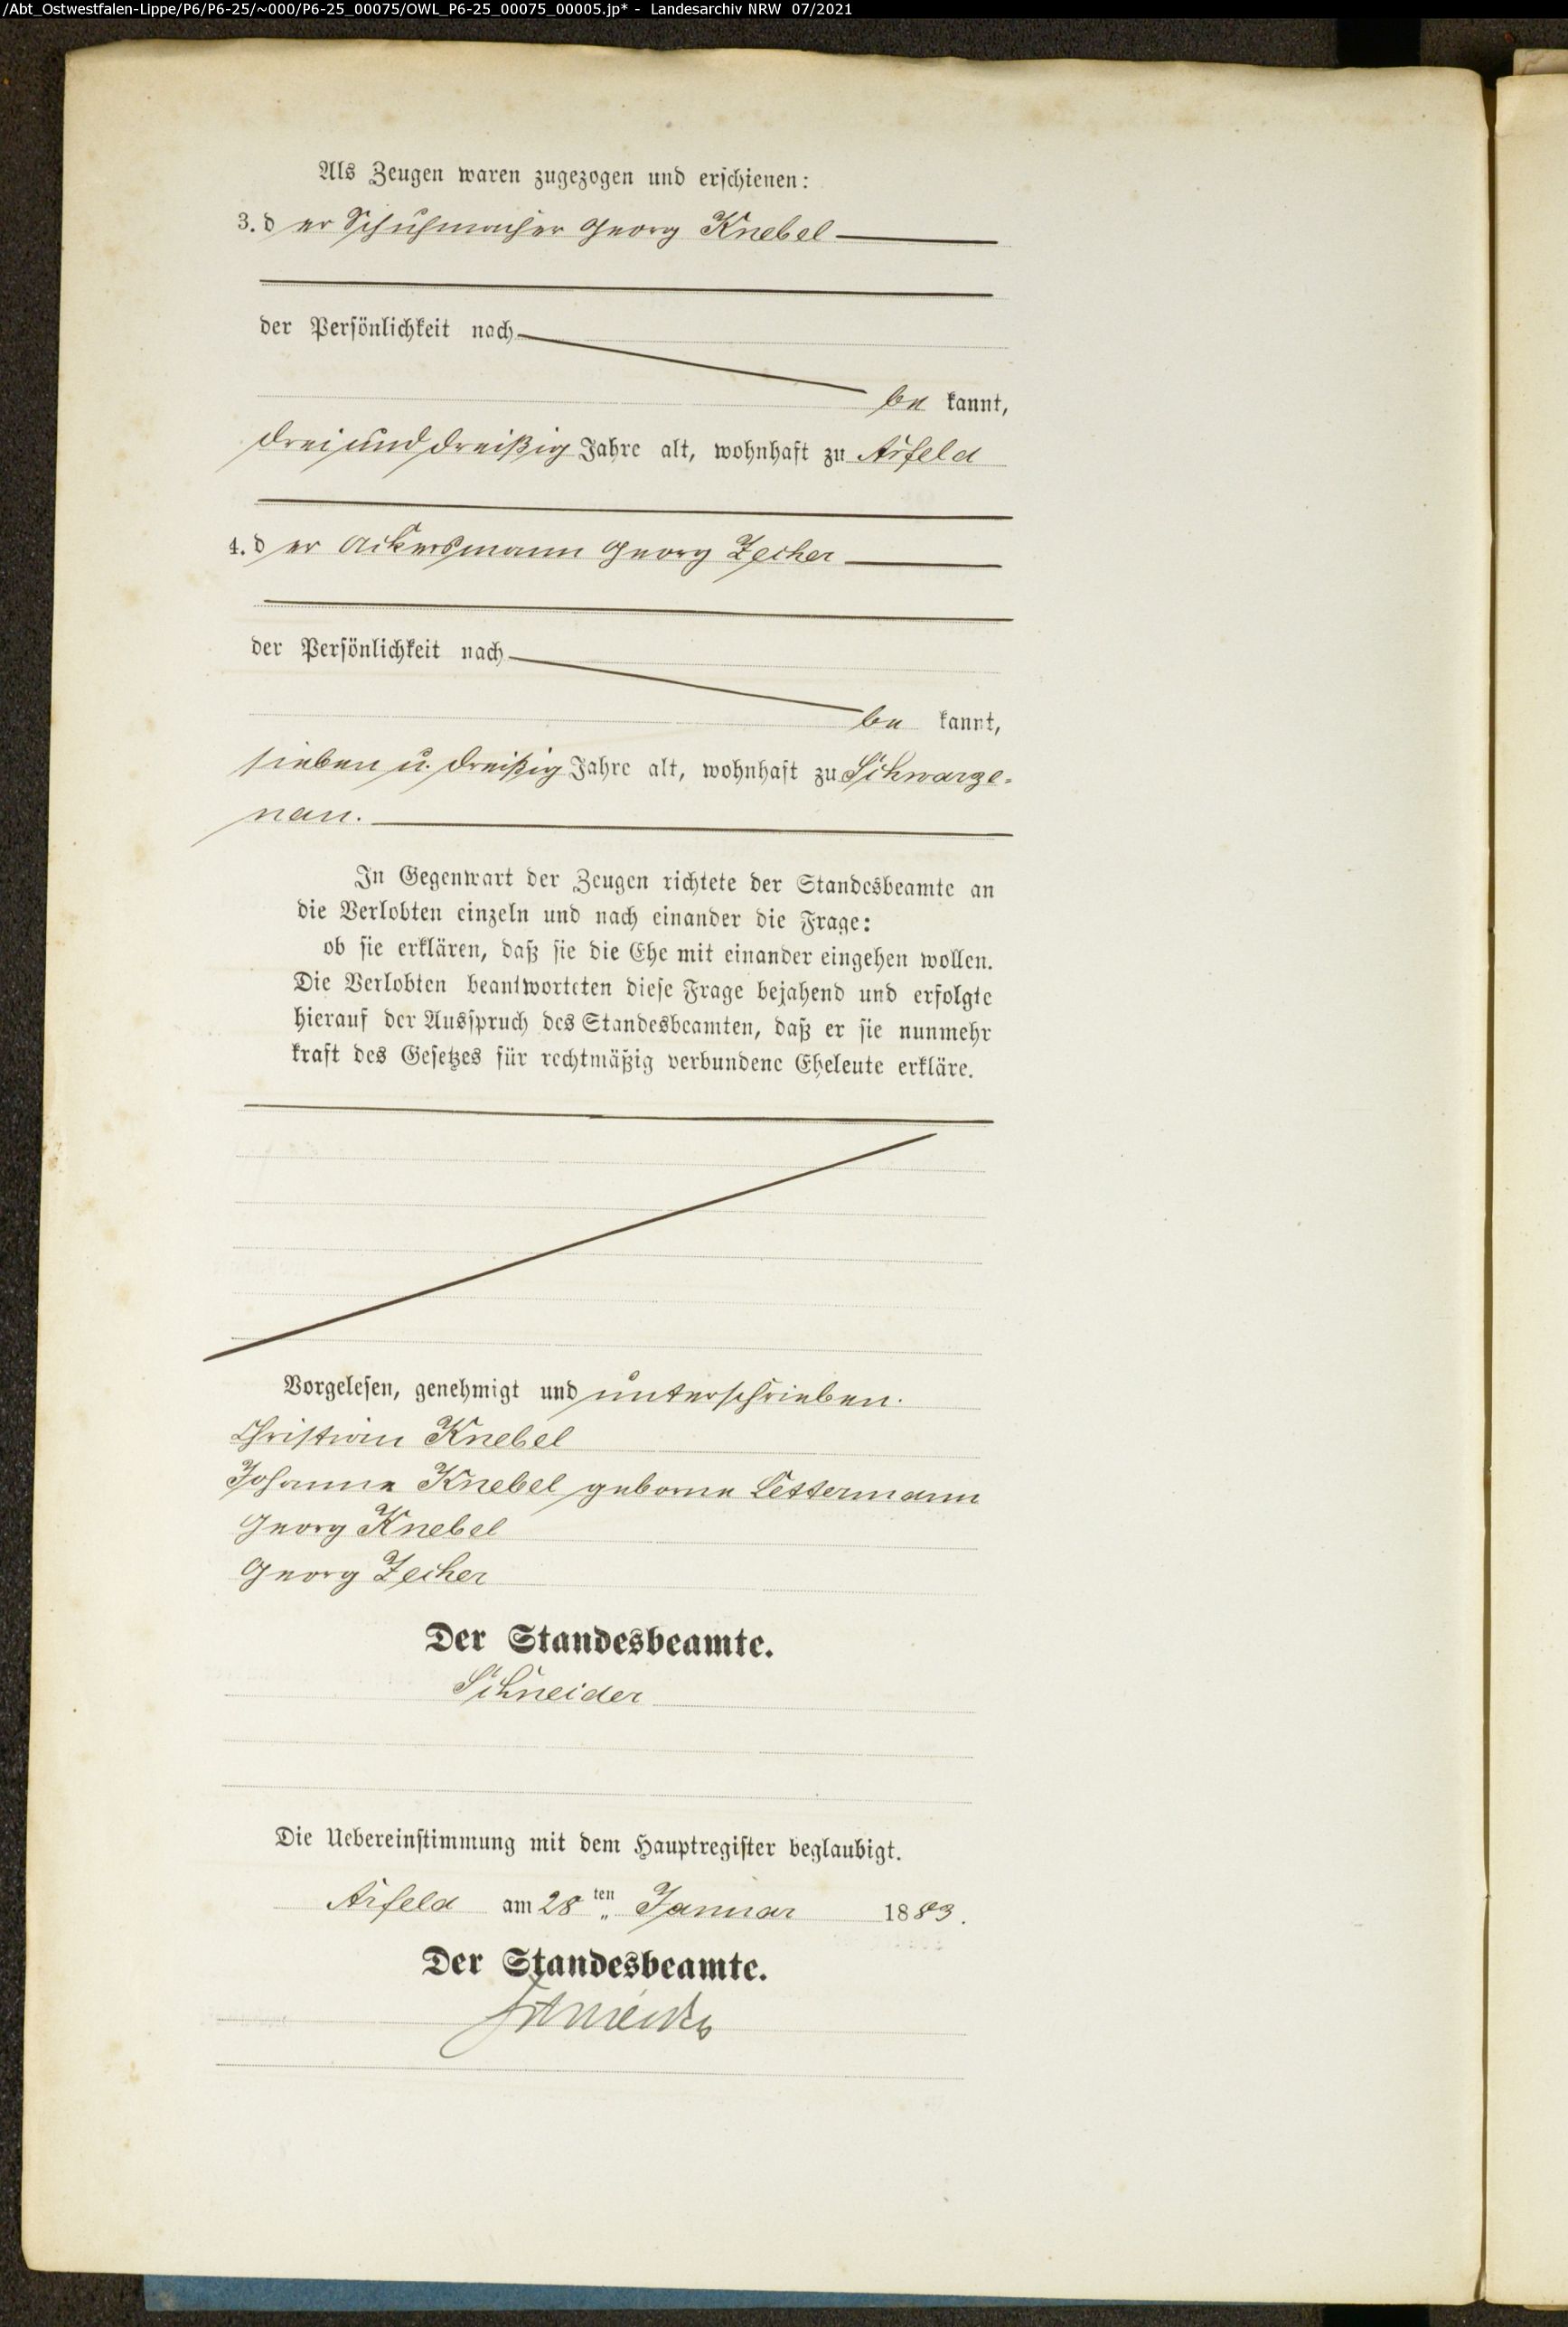 /Abt_Ostwestfalen-Lippe/P6/P6-25/~000/P6-25_00075/OWL_P6-25_00075_00005.jp* - Landesarchiv NRW 07/2021
Als Zeugen waren zugezogen und erschienen:
3. der Schuhmacher Georg Knebel
der Persönlichkeit nach
bekannt,
drei und dreißig Jahre alt, wohnhaft zu Arfeld
4. der Ackersmann Georg Zecher
der Persönlichkeit nach
bekannt,
sieben u. dreißig Jahre alt, wohnhaft zu Schwarze-
nau.
In Gegenwart der Zeugen richtete der Standesbeamte an
die Verlobten einzeln und nach einander die Frage:
ob sie erklären, daß sie die Ehe mit einander eingehen wollen.
Die Verlobten beantworteten diese Frage bejahend und erfolgte
hierauf der Ausspruch des Standesbeamten, daß er sie nunmehr
kraft des Gesetzes für rechtmäßig verbundene Eheleute erkläre.
Vorgelesen, genehmigt und unterschrieben.
Christian Knebel
Johanna Knebel geborne Lettermann
Georg Knebel
Georg Zecher
Der Standesbeamte.
Schneider
Die Uebereinstimmung mit dem Hauptregister beglaubigt.
Arfeld am 28ten Januar 1883.
Der Standesbeamte.
Schneider